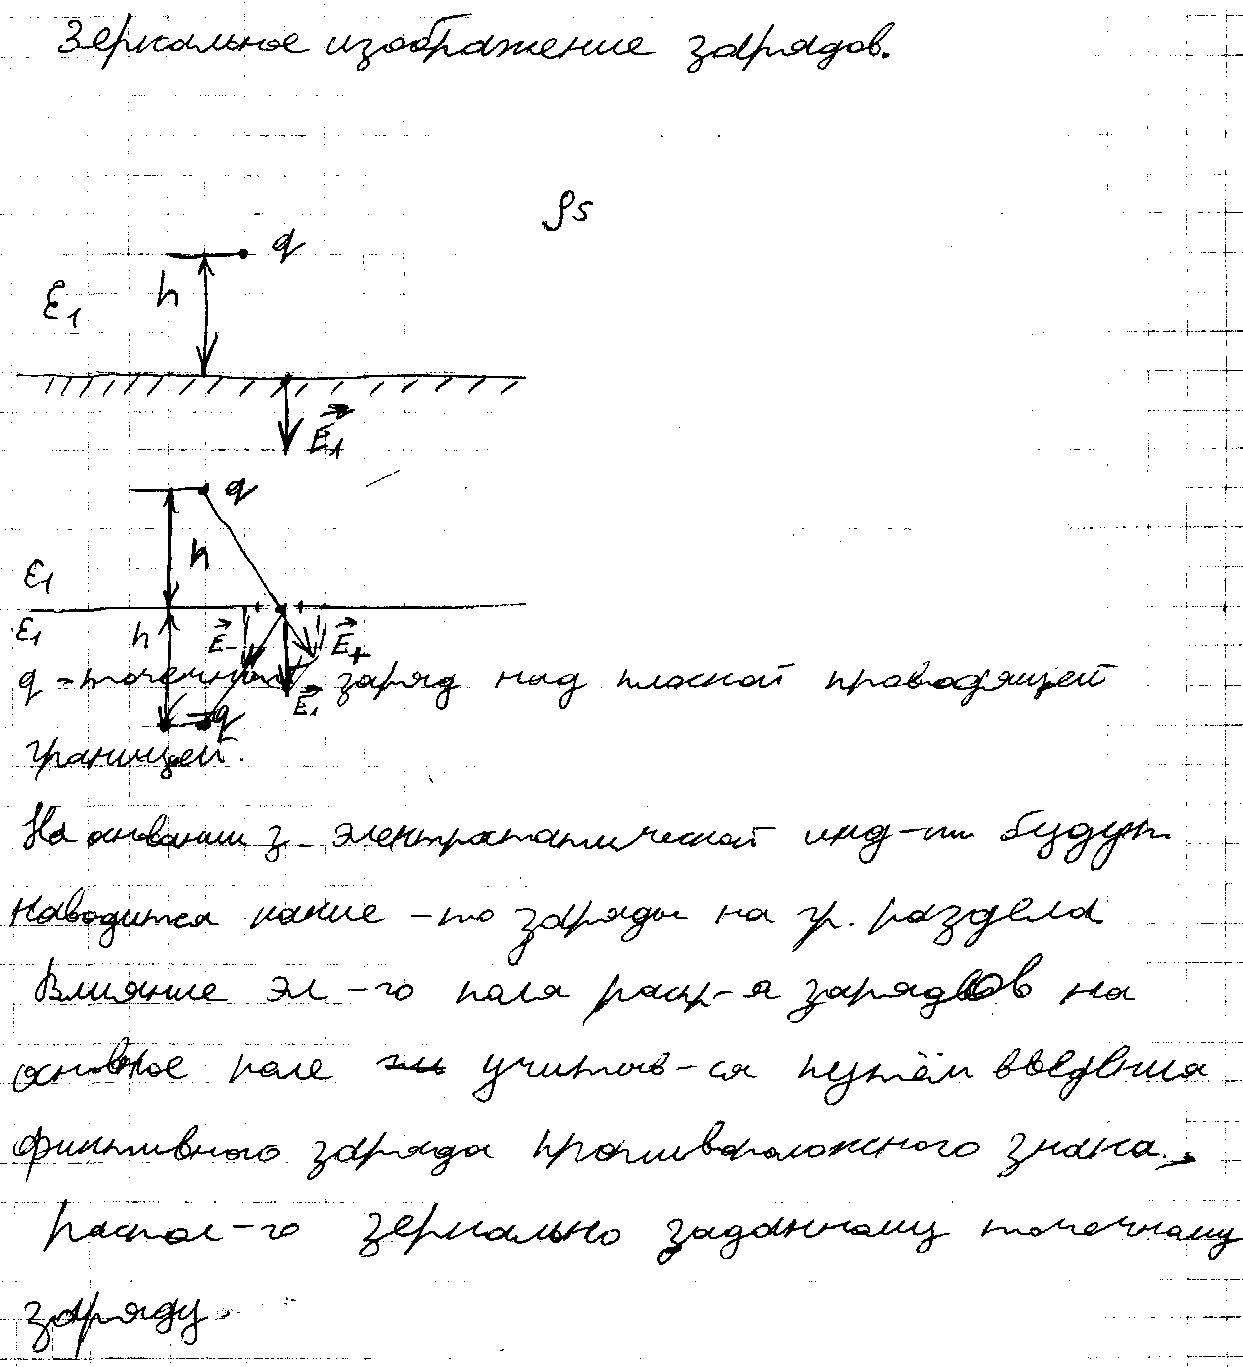 Зеркальное изображение зарядов.
ρs
q
ε1 h
E1
q
h
ε1
ε1 h E- E+
q - точечный заряд над плоской проводящей
E1
-q
границей.
На основании з. электростатической инд-ии будут
наводится какие-то заряды на гр. раздела
Влияние эл-го поля распр-я зарядов на
основное поле учитыв-ся путём введения
фиктивного заряда противоположного знака,
распол-го зеркально заданному точечному
заряду.